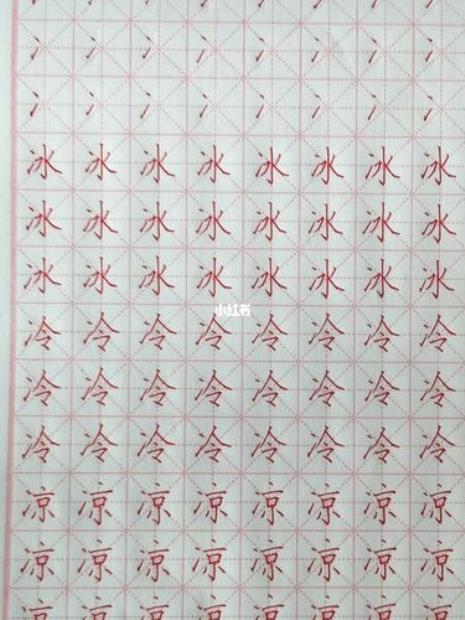 冫冫冫冫冫冫冫冫
冫冫冫冫冫冫冫冫
冫冫冫冫冫冫冫冫
冰冰冰冰冰冰冰冰
冰冰冰冰冰冰冰冰
冰冰冰冰冰冰冰冰
小红书
冷冷冷冷冷冷冷冷
冷冷冷冷冷冷冷冷
冷冷冷冷冷冷冷冷
凉凉凉凉凉凉凉凉
凉凉凉凉凉凉凉凉
凉凉凉凉凉凉凉凉